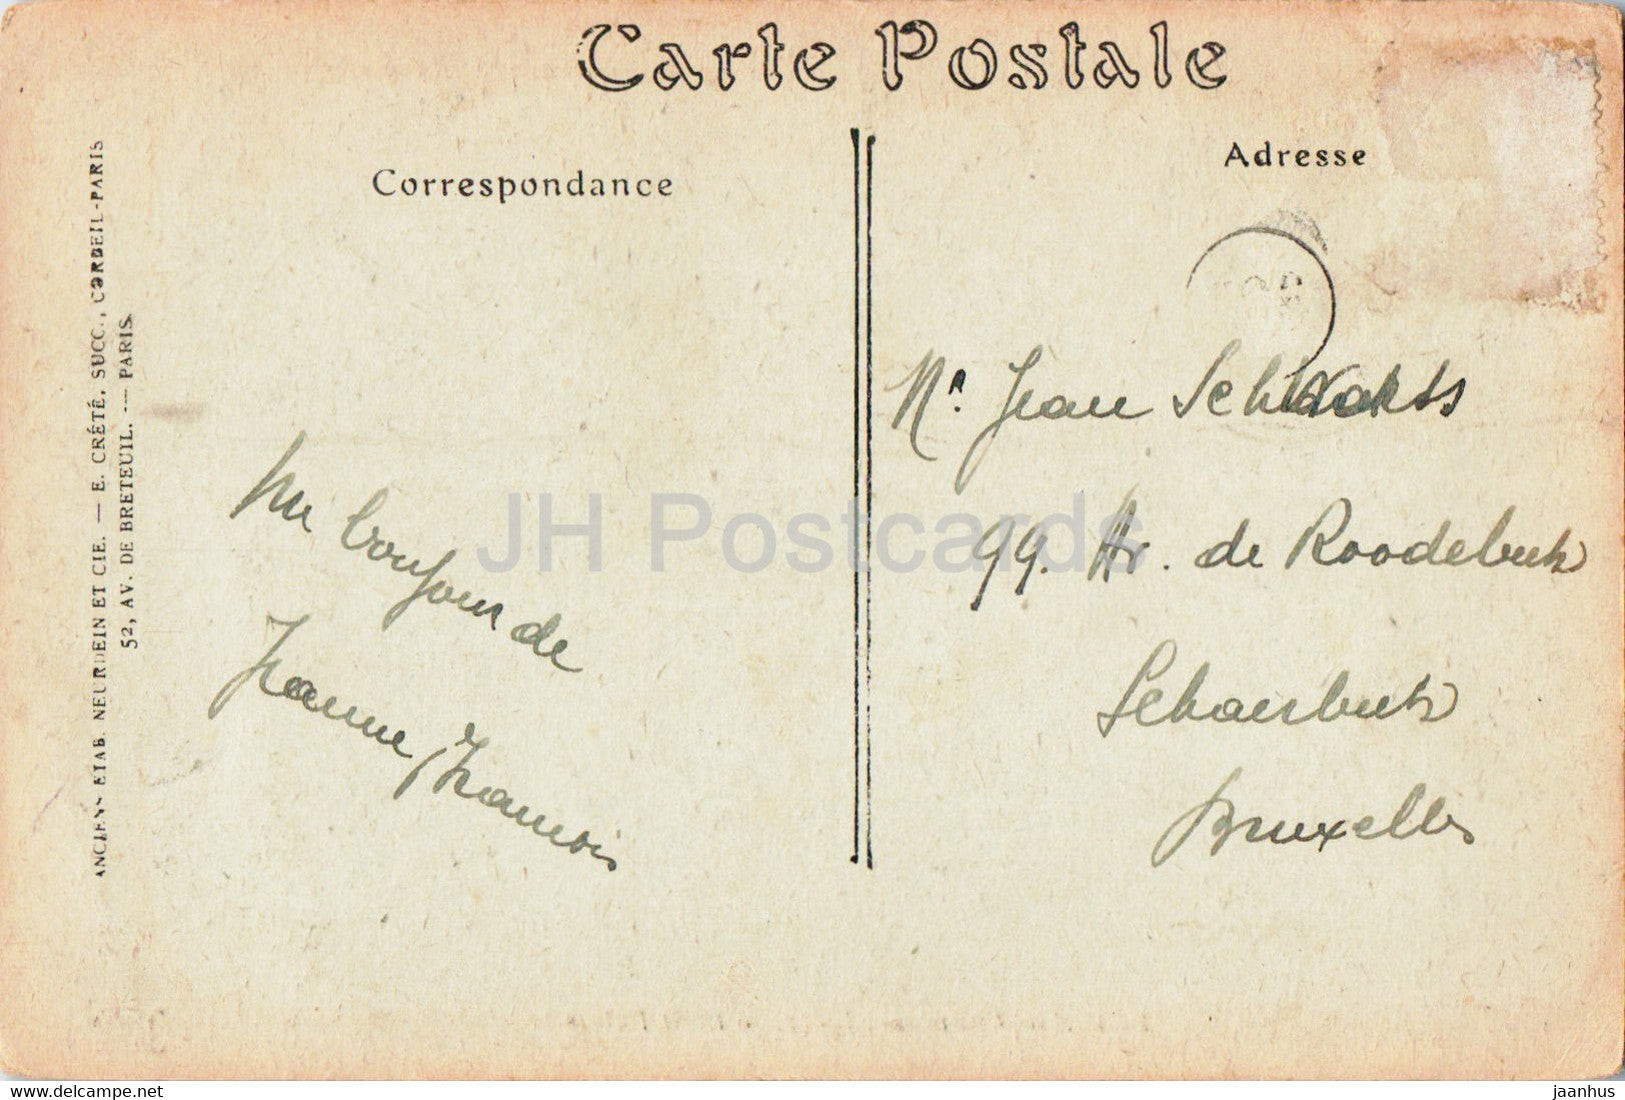 Carte Postale
Correspondance
Adresse
ANCIENS ETAB. NEURDEIN ET CIE. — E. CRÉTÉ, SUCC., CORBEIL-PARIS
52, AV. DE BRETEUIL. — PARIS.
Un bonjour de
Jeanne
Mr. Jean
99. Av. de Roodebeek
Schaerbeek
Bruxelles
JH Postcards
www.delcampe.net
jaanhus